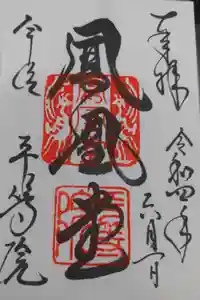 奉拝
令和四年
六月
鳳凰堂
宇治
平等院